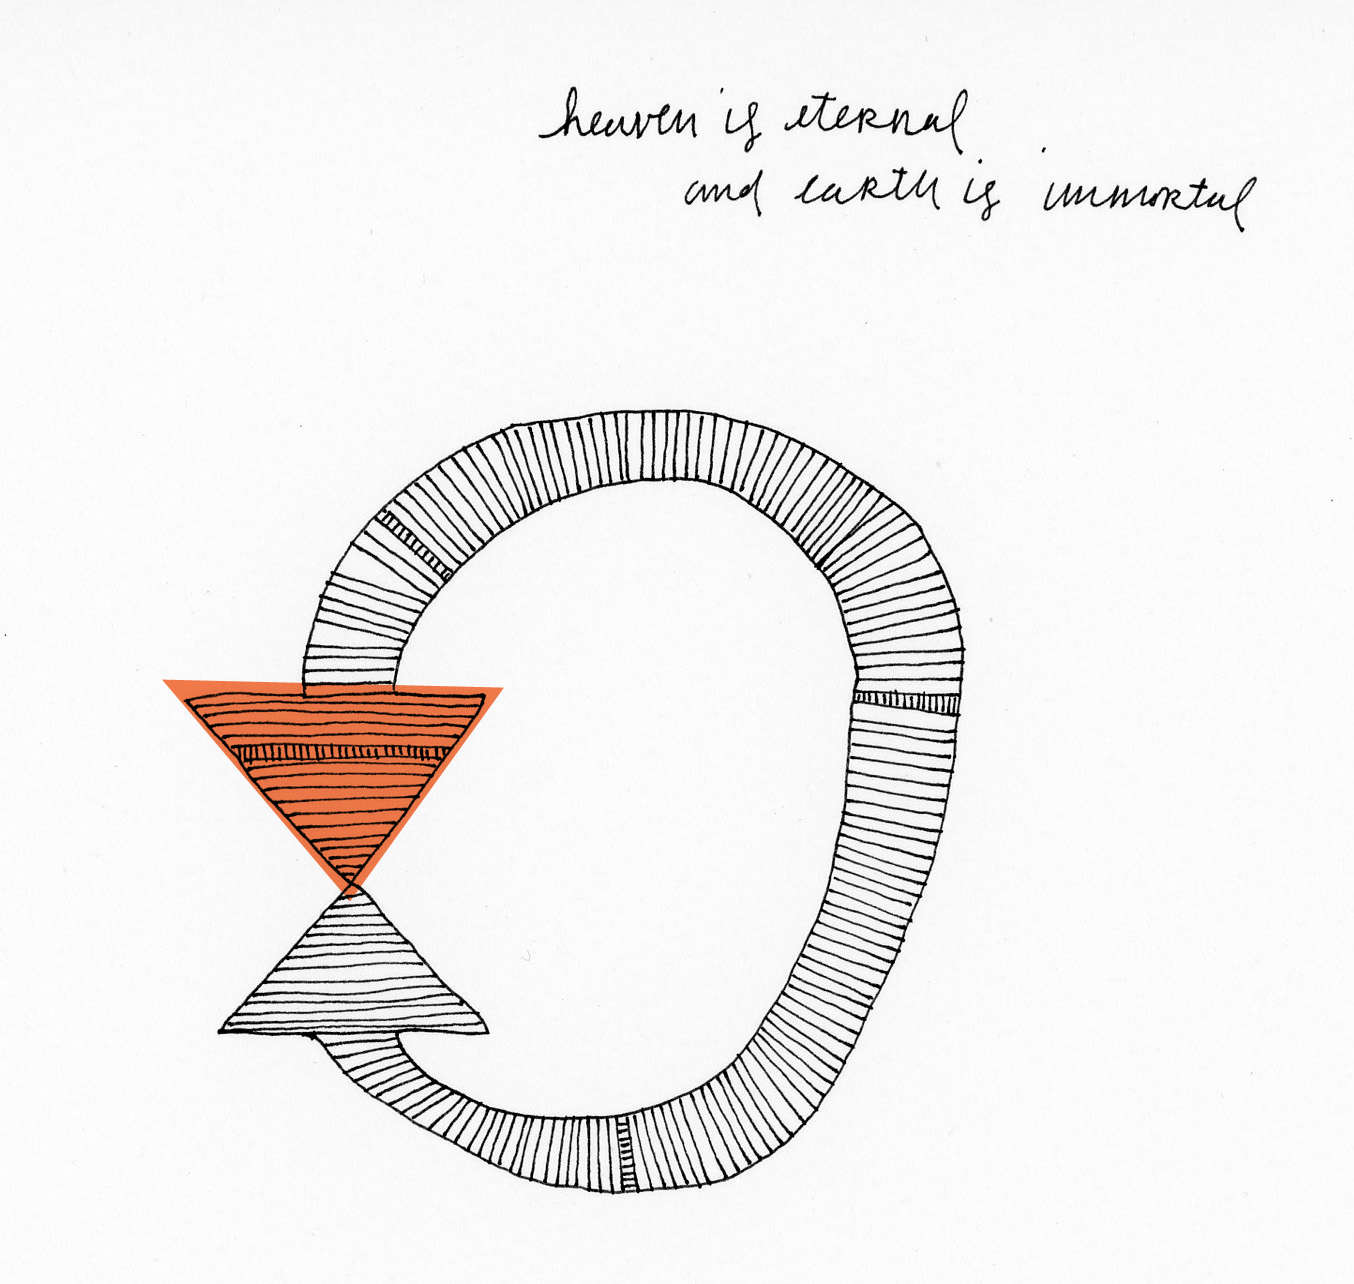 heaven is eternal
and earth is immortal